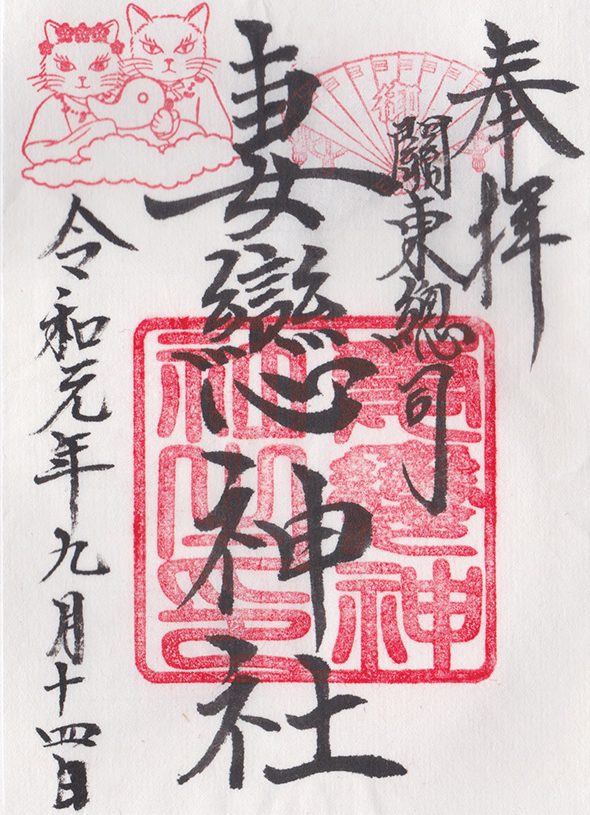 奉拝
關東總司
妻戀神社
令和元年九月十四日
妻戀神
社之印